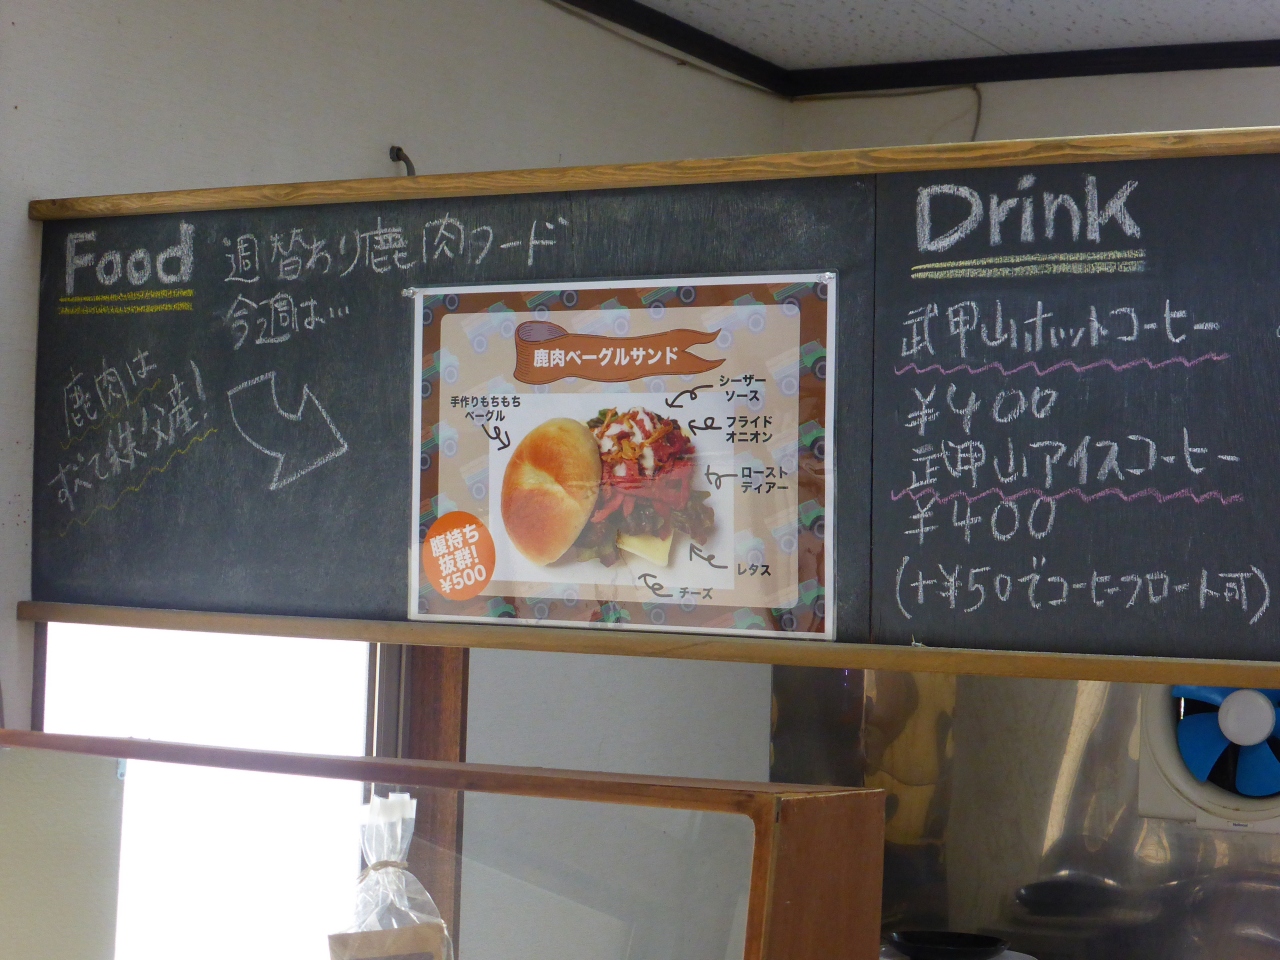 Food
週替わり鹿肉フード
今週は…
鹿肉は
すべて秩父産!
鹿肉ベーグルサンド
手作りもちもち
ベーグル
シーザー
ソース
フライド
オニオン
ロースト
ディアー
レタス
チーズ
腹持ち
抜群!
¥500
Drink
武甲山ホットコーヒー
¥400
武甲山アイスコーヒー
¥400
(+¥50でコーヒーフロート可)